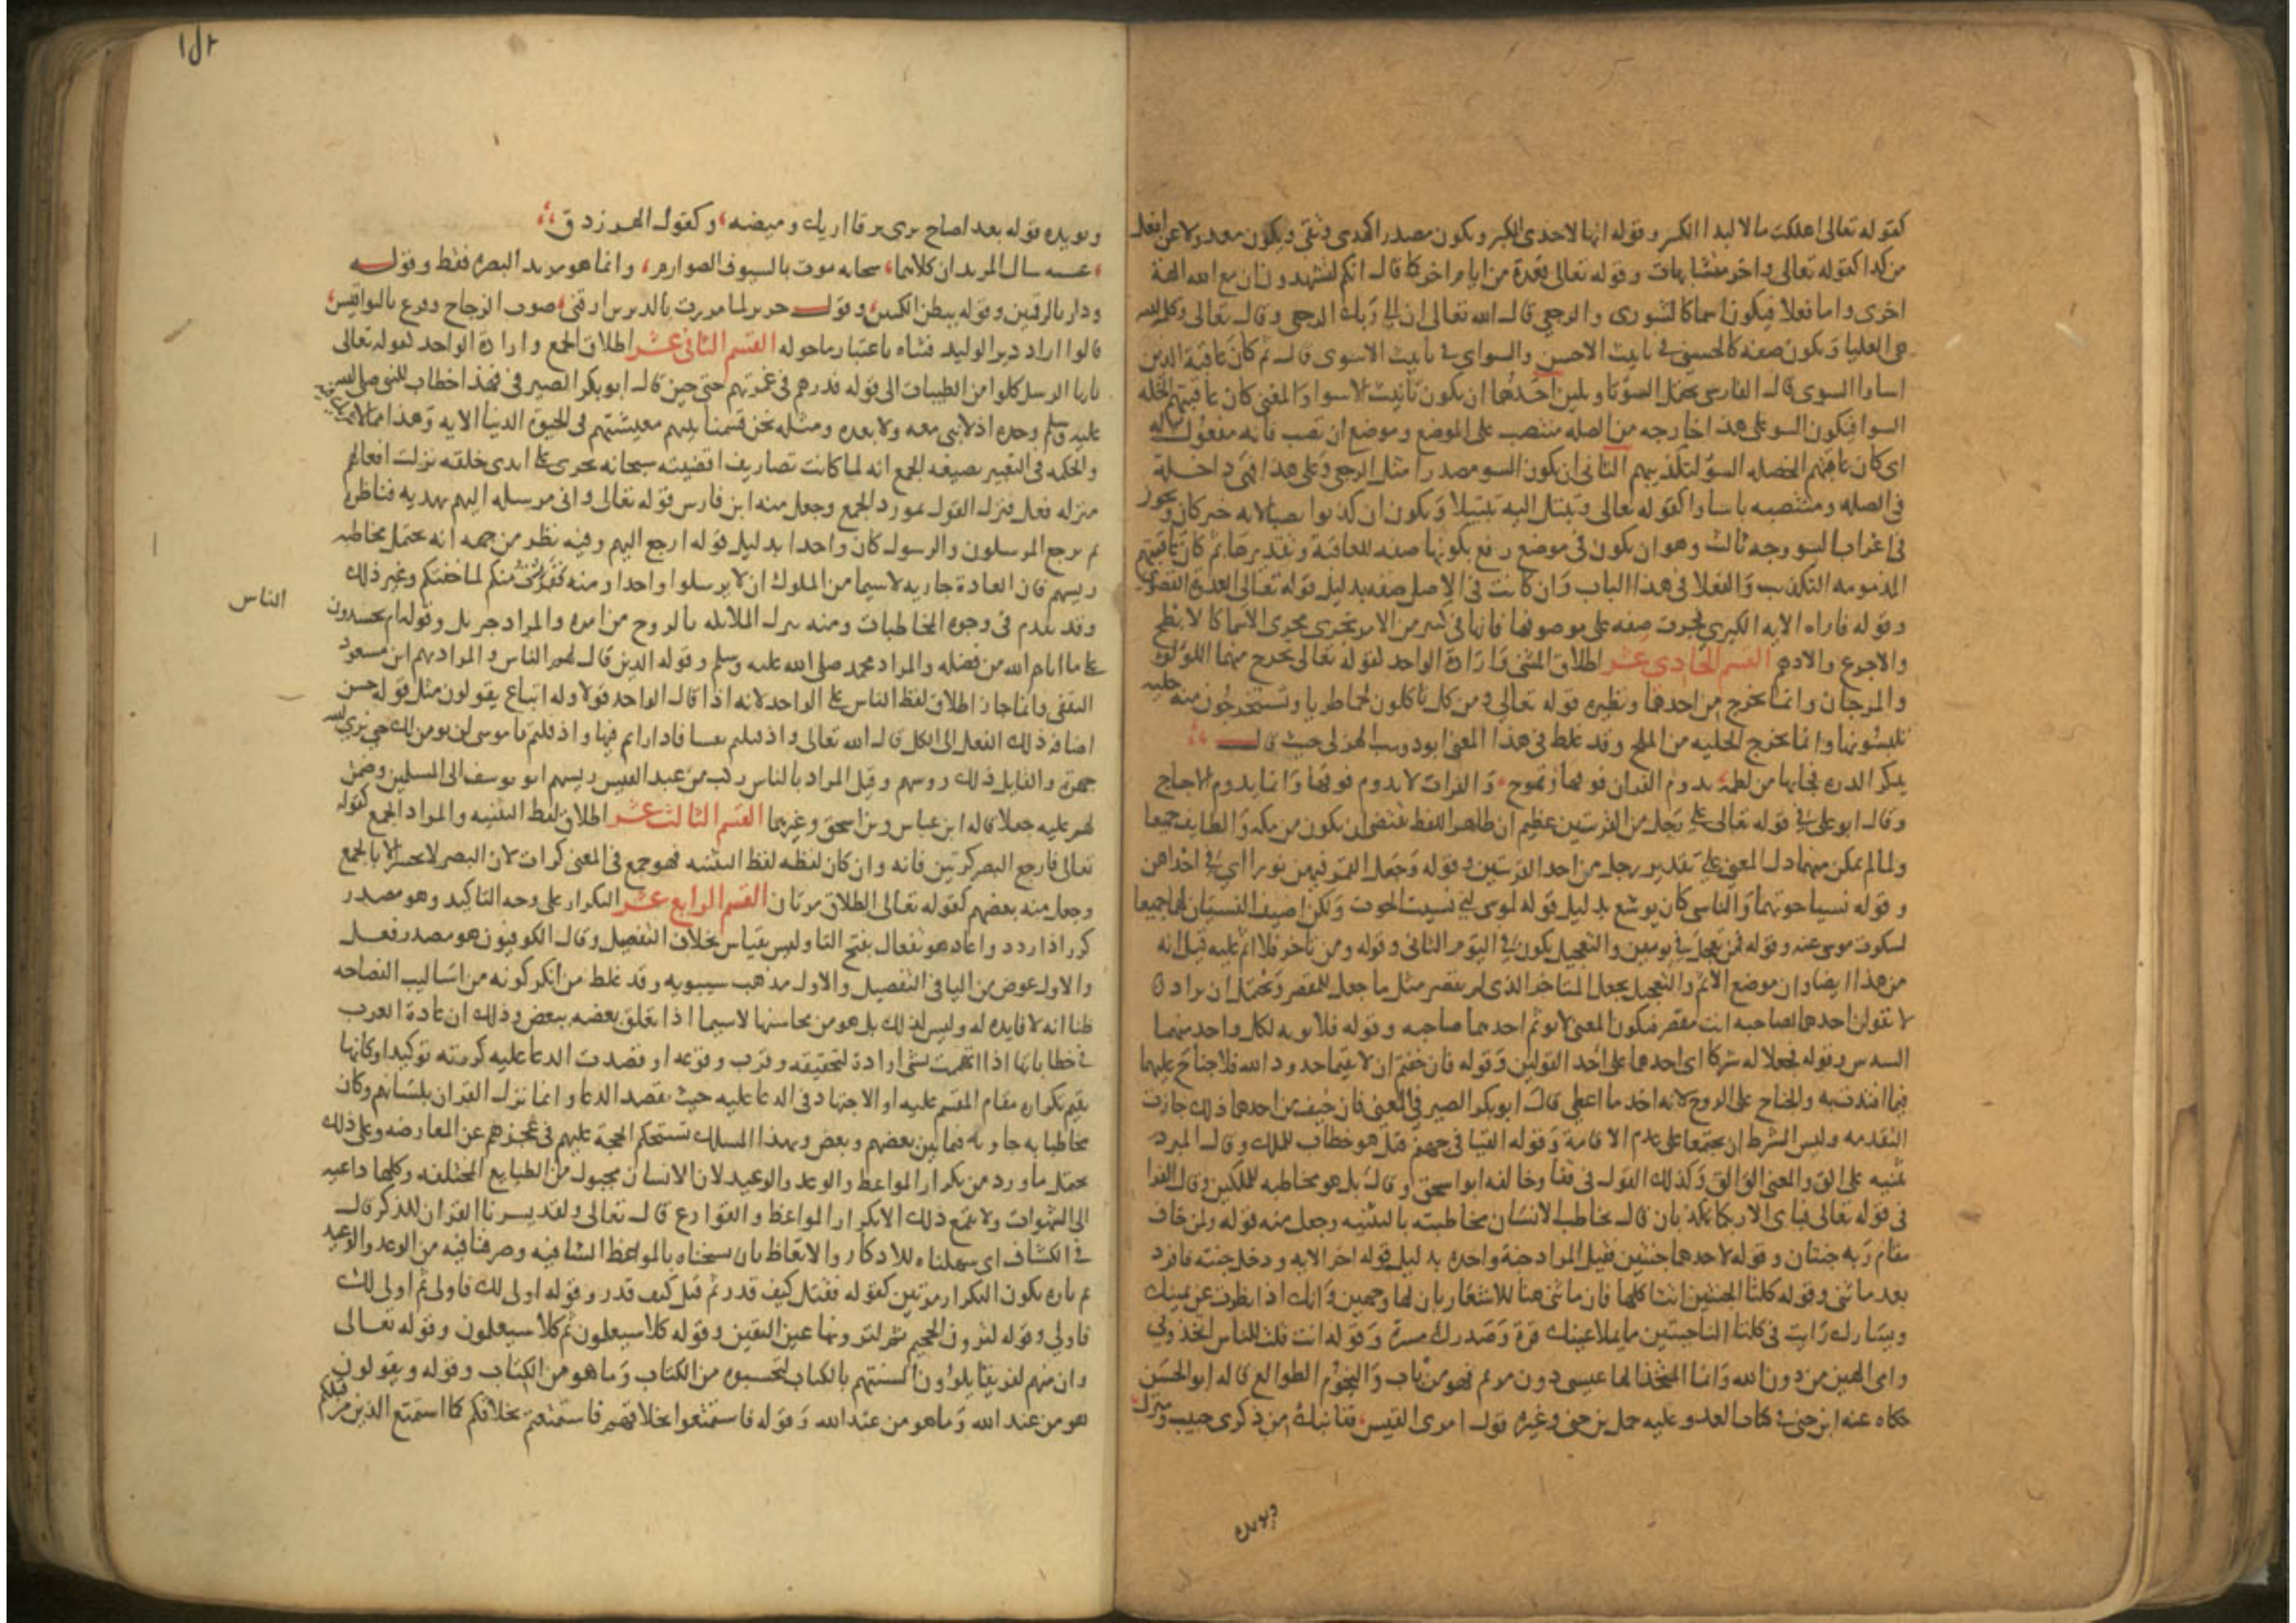 كقوله تعالى اهلكت مالا لبدا الكسر وقوله انها لاحدى الكبر ويكون مصدر الهدى وتقى ويكون معدولا عن افعل
من كذا كقوله تعالى واخر متشابهات وقوله تعالى فعدة من ايام اخر كما قال انكم لتشهدون ان مع الله الهة
اخرى واما فعلا فيكون اسما كالشورى والرجعى قال الله تعالى ان الى ربك الرجعى وقال تعالى وكلمة الله
هى العليا ويكون صفة كالحسنى في تانيث الاحسن والسواى في تانيث الاسوى قال ثم كان عاقبة الذين
اساوا السوى قال الفارسى يحتمل السوتاويلين احدهما ان يكون تانيث الاسوا والمعنى كان عاقبتهم الخله
السوا فيكون السو على هذا خارجه من الصله منتصب على الموضع وموضع ان نصب فانه مفعول له
اى كان عاقبتهم الخصله السو لتكذيبهم الثانى ان يكون السو مصدرا مثل الرجعى وعلى هذا فهى داخلة
فى الصله ومنتصبه باساوا كقوله تعالى وتبتل اليه تبتيلا ويكون ان كذبوا نصبا لانه خبر كان ويجوز
فى اعراب السو وجه ثالث وهو ان يكون فى موضع رفع بكونها صفه للعاقبة وتقديرها ثم كان عاقبتهم
المذمومه التكذيب والفعلا فى هذا الباب وان كانت فى الاصل صفه بدليل قوله تعالى العدوة القصوى
وقوله فاراه الايه الكبرى فجرت صفه على موصوفها فانها فى كثير من الامر تجرى مجرى الاسما كالابطح
والاجرع والادهم القسم الحادى عشر اطلاق المثنى وارادة الواحد كقوله تعالى يخرج منهما اللؤلؤ
والمرجان وانما يخرج من احدهما ونظيره قوله تعالى ومن كل تاكلون لحما طريا وتستخرجون منه حليه
تلبسونها وانما يخرج الحليه من الملح وقد غلط فى هذا المعنى ابو ذويب الهذلى حيث قال
يذكر الدره فجا بها من لطمة يدوم الفرات فوقها وتموج والفرات لا يدوم فوقها وانما يدوم الاجاج
وقال ابو على في قوله تعالى على رجل من القريتين عظيم ان ظاهر اللفظ يقتضى ان يكون من مكه والطايف جميعا
ولما لم يمكن منهما دل المعنى على تقدير رجل من احد القريتين وقوله وجعل القمر فيهن نورا اى في احداهن
وقوله نسيا حوتهما والناسى كان يوشع بدليل قوله لموسى انى نسيت الحوت ولكن اضيف النسيان لهما جميعا
لسكوت موسى عنه وقوله فمن تعجل في يومين والتعجيل يكون في اليوم الثانى وقوله ومن تاخر فلا اثم عليه قيل انه
من هذا ايضا وان موضع الاثم والتعجيل يجعل المتاخر الذى لم يقصر مثل ما جعل للمقصر ويحتمل ان يراد
لا تقولن احدهما لصاحبه انت مقصر فيكون المعنى لا يوثم احدهما صاحبه وقوله فلابويه لكل واحد منهما
السدس وقوله جعلا له شركا اى احدهما على احد القولين وقوله فان خفتم ان لا يقيما حدود الله فلا جناح عليهما
فيما افتدت به والجناح على الزوج لانه اخذ ما اعطى قال ابو بكر الصير فى المعنى فان خيف من احدهما ذلك جازت
الفديه وليس الشرط ان يجتمعا على عدم الاقامة وقوله القيا فى جهنم قيل هو خطاب للملك وقال المبرد
ثنيه على الق والمعنى الق الق وكذلك القول فى قفا وخالفه ابو اسحق وقال بل هو مخاطبه للملكين وقال الفرا
فى قوله تعالى فباى الاء ربكما تكذبان قال يخاطب الانسان مخاطبته بالتثنيه وجعل منه قوله ولمن خاف
مقام ربه جنتان وقوله لاحدهما جنتين فقيل المراد جنة واحده بدليل قوله اخر الايه ودخل جنته فافرد
بعد ما ثنى وقوله كلتا الجنتين اتت اكلها فان ما ثنى هنا للاشعار بان لها وجهين وانك اذا نظرت عن يمينك
ويسارك رايت فى كلتا الناحيتين ما يملا عينك قرة وصدرك مسرة وقوله انت قلت للناس اتخذونى
وامى الهين من دون الله وانما المتخذ الها عيسى دون مريم فهو من باب والنجوم الطوالع قاله ابو الحسن
حكاه عنه ابن جنى في كتاب القد وعليه حمل بن جنى وغيره قول امرى القيس قفا نبك من ذكرى حبيب ومنزل
ويويده
١٥٢
ويويده قوله بعد اصاح ترى برقا اريك وميضه وكقول الفرزدق
عشيه سال المربدان كلاهما سحابه موت بالسيوف الصوارم وانما هو مربد البصره فقط وقوله
ودار بالرقمتين وقوله ببطن المكتين وقول جرير لما مررت بالديرين ارقنى صوت الدجاج وقرع بالنواقيس
قالوا اراد دير الوليد فثناه باعتبار ما حوله القسم الثانى عشر اطلاق الجمع وارادة الواحد كقوله تعالى
يايها الرسل كلوا من الطيبات الى قوله فذرهم فى غمرتهم حتى حين قال ابو بكر الصير فى فهذا خطاب للنبى صلى الله
عليه وسلم وحده اذ لا نبى معه ولا بعده ومثله نحن قسمنا بينهم معيشتهم فى الحيوة الدنيا الايه وهذا مما لا شريك فيه
والحكمه فى التعبير بصيغه الجمع انه لما كانت تصاريف اقضيته سبحانه تجرى على ايدى خلقه نزلت افعالهم
منزله فعل فنزل القول بمورد الجمع وجعل منه ابن فارس قوله تعالى وانى مرسله اليهم بهديه فناظرة
بم يرجع المرسلون والرسول كان واحدا بدليل قوله ارجع اليهم وفيه نظر من جهه انه يحتمل مخاطبه
رييسهم فان العادة جاريه لا سيما من الملوك ان لا يرسلوا واحدا ومنه ففررت منكم لما خفتكم وغير ذلك
وقد تقدم فى وجوه المخاطبات ومنه ينزل الملايكه بالروح من امره والمراد جبريل وقوله ام يحسدون
الناس
على ما اتاهم الله من فضله والمراد محمد صلى الله عليه وسلم وقوله الذين قال لهم الناس والمراد بهم ابن مسعود
الثقفى وانما جاز اطلاق لفظ الناس على الواحد لانه اذا قال الواحد قولا وله اتباع يقولون مثل قوله حسن
اضافه ذلك الفعل الى الكل قال الله تعالى واذ قتلتم نفسا فادارأتم فيها واذ قلتم يا موسى لن نومن لك حتى نرى الله
جهرة والقايل ذلك روسهم وقيل المراد بالناس ركب من عبد القيس رييسهم ابو يوسف الى المسلمين وضمن
لهم عليه جعلا قاله ابن عباس وبن اسحق وغيرهما القسم الثالث عشر اطلاق لفظ التثنيه والمراد الجمع كقوله
تعالى فارجع البصر كرتين فانه وان كان لفظه لفظ التثنيه فهو جمع فى المعنى كرات لان البصر لا يحسر الا بالجمع
وجعل منه بعضهم كقوله تعالى الطلاق مرتان القسم الرابع عشر التكرار على وجه التاكيد وهو مصدر
كرر اذا ردد واعاد هو تفعال بفتح التا وليس بقياس بخلاف التفعيل وقال الكوفيون هو مصدر فعل
والاول عوض من اليا فى التفعيل والاول مذهب سيبويه وقد غلط من انكر كونه من اساليب الفصاحه
ظنا انه لا فايده له وليس كذلك بل هو من محاسنها لا سيما اذا تعلق بعضه ببعض وذلك ان عادة العرب
في خطاباتها اذا ابهمت بشى ارادة لتحقيقه وقرب وقوعه او قصدت الدعا عليه كررته توكيدا وكانها
تقيم تكراره مقام المقسم عليه او الاجتهاد فى الدعا عليه حيث تقصد الدعا وانما نزل القران بلسانهم وكان
مخاطبا به جاريه فيما بين بعضهم وبعض وبهذا المسلك تستحكم الحجة عليهم فى عجزهم عن المعارضه وعلى ذلك
يحتمل ما ورد من تكرار المواعظ والوعد والوعيد لان الانسان مجبول من الطبايع المختلفه وكلها داعيه
الى الشهوات ولا يقمع ذلك الا تكرار المواعظ والقوارع قال تعالى ولقد يسرنا القران للذكر قال
في الكشاف اى سهلناه للادكار والاتعاظ بان نسجناه بالمواعظ الشافيه وصرفنا فيه من الوعد والوعيد
ثم تاره يكون التكرار مرتين كقوله فقتل كيف قدر ثم قتل كيف قدر وقوله اولى لك فاولى ثم اولى لك
فاولى وقوله لترون الجحيم ثم لترونها عين اليقين وقوله كلا سيعلمون ثم كلا سيعلمون وقوله تعالى
وان منهم لفريقا يلوون السنتهم بالكتاب لتحسبوه من الكتاب وما هو من الكتاب وقوله ويقولون
هو من عند الله وما هو من عند الله وقوله فاستمتعوا بخلاقهم فاستمتعتم بخلاقكم كما استمتع الذين من قبلكم